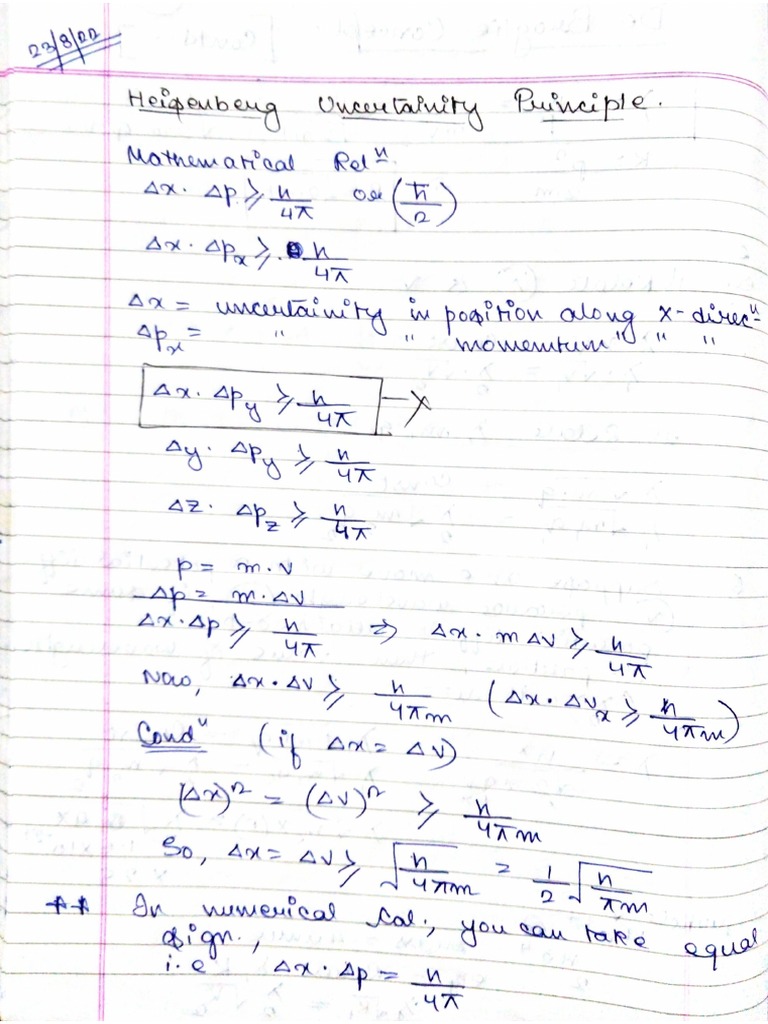 23/8/22
Heisenberg Uncertainity Principle.
Mathematical Relⁿ.
Δx. Δp ≥ h/4π or (ħ/2)
Δx. Δpₓ ≥ h/4π
Δx = uncertainity in position along x-direcⁿ
Δpₓ = " " momentum " " "
Δx. Δp_y ≥ h/4π —X
Δy. Δp_y ≥ h/4π
Δz. Δp_z ≥ h/4π
p = m.v
Δp = m.Δv
Δx.Δp ≥ h/4π ⇒ Δx. mΔv ≥ h/4π
Now, Δx.Δv ≥ h/4πm (Δx. Δvₓ ≥ h/4πm)
Condⁿ (if Δx = Δv)
(Δx)² = (Δv)² ≥ h/4πm
So, Δx = Δv ≥ √(h/4πm) = 1/2 √(h/πm)
** In numerical sol., you can take equal
sign.,
i.e Δx. Δp = h/4π